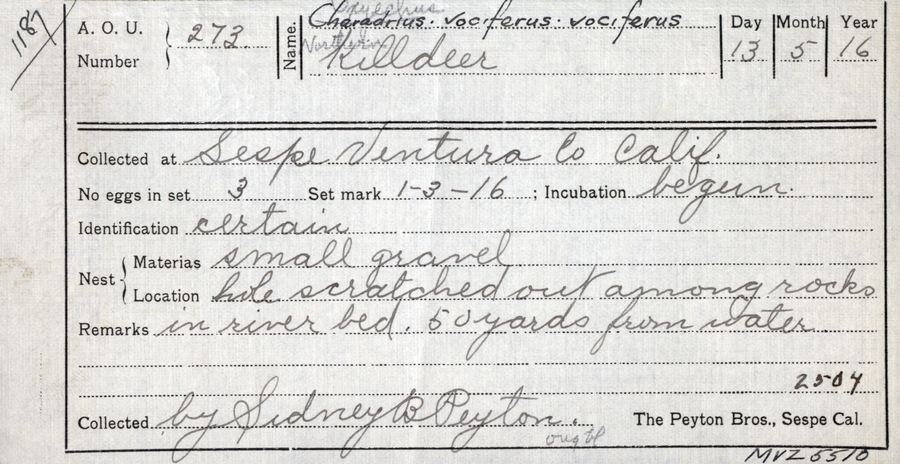 1187
Oxyechus
Charadrius vociferus vociferus
A. O. U. Number 273. Name. Northern Killdeer
Day Month Year
13 5 16
Collected at Sespe Ventura Co Calif.
No eggs in set 3 Set mark 1-3-16 ; Incubation begun.
Identification certain
Nest Materias small gravel
Location hole scratched out among rocks
Remarks in river bed. 50 yards from water.
2504
Collected by Sidney B Peyton. The Peyton Bros., Sespe Cal.
MVZ 5510